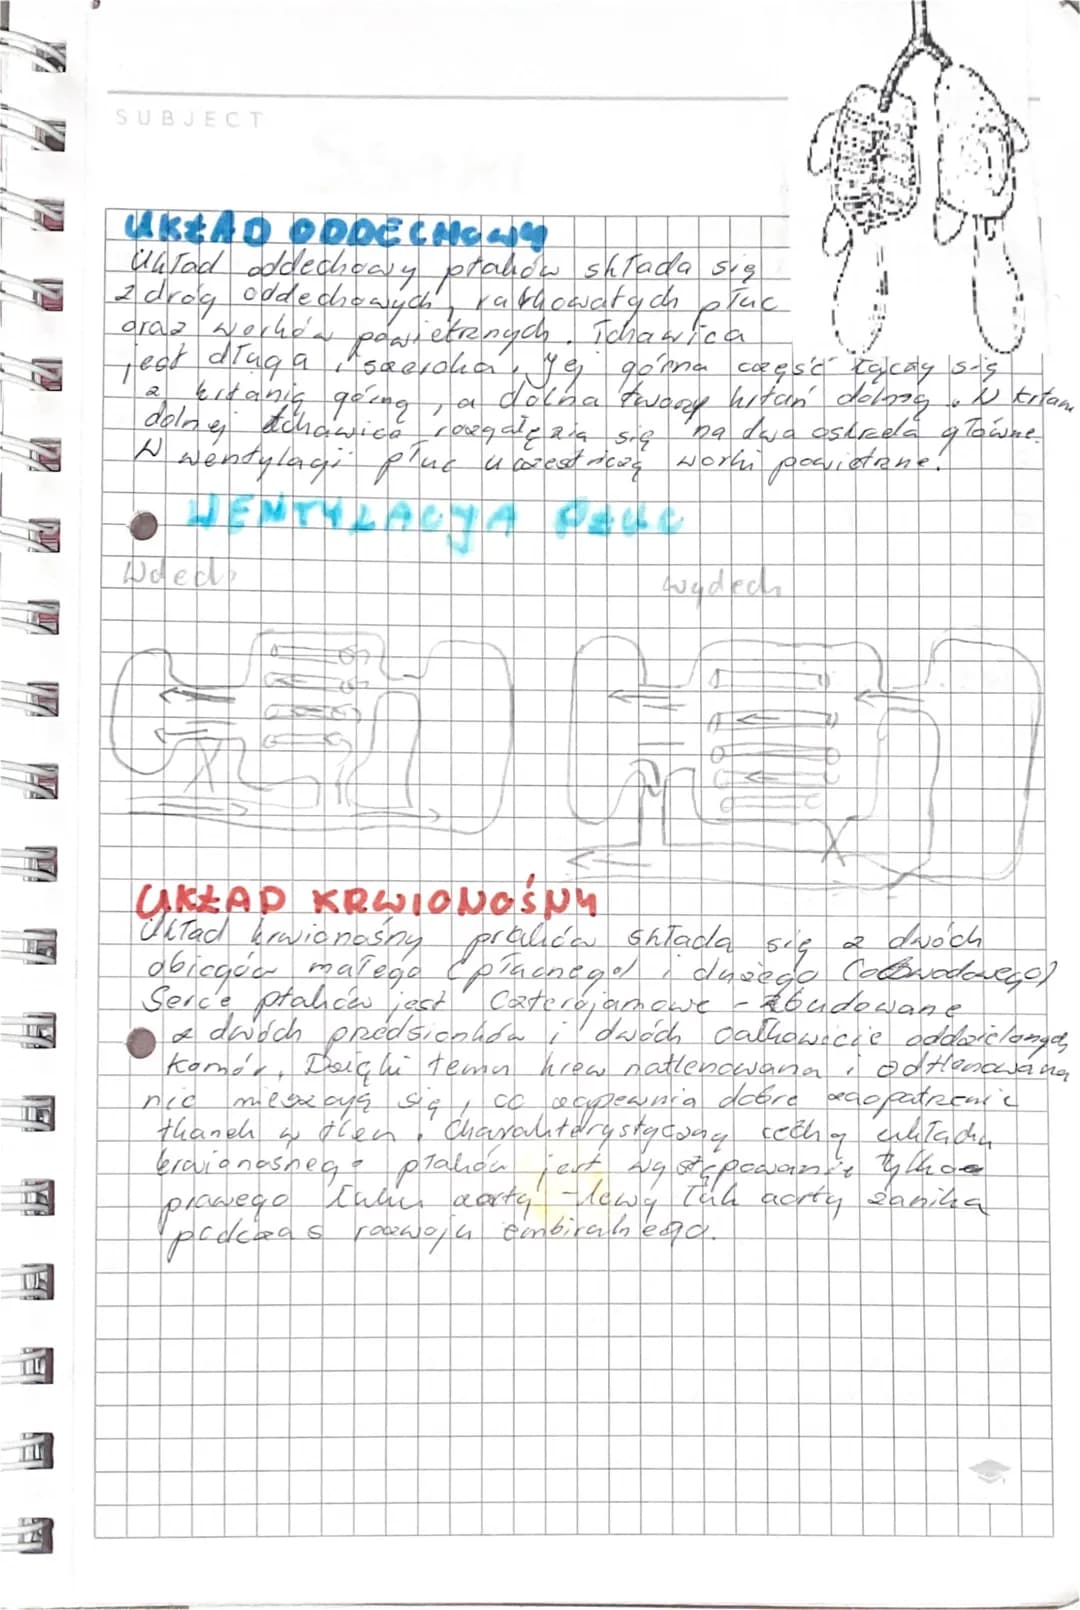 SUBJECT
UKŁAD ODDECHOWY
Układ oddechowy ptaków składa się
z dróg oddechowych, rurkowatych płuc
oraz worków powietrznych. Tchawica
jest długa i szeroka. Jej górna część łączy się
z krtanią górną, a dolna tworzy krtań dolną. W krtani
dolnej tchawica rozgałęzia się na dwa oskrzela główne.
W wentylacji płuc uczestniczą worki powietrzne.
WENTYLACJA PŁUC
Wdech
wydech
UKŁAD KRWIONOŚNY
Układ krwionośny ptaków składa się z dwóch
obiegów małego (płucnego) i dużego (obwodowego)
Serce ptaków jest czterojamowe - zbudowane
z dwóch przedsionków i dwóch całkowicie oddzielonych
komór. Dzięki temu krew natlenowana i odtlenowana
nie mieszają się, co zapewnia dobre zaopatrzenie
tkanek w tlen. Charakterystyczną cechą układu
krwionośnego ptaków jest występowanie tylko
prawego łuku aorty - lewy łuk aorty zanika
podczas rozwoju embiralnego.